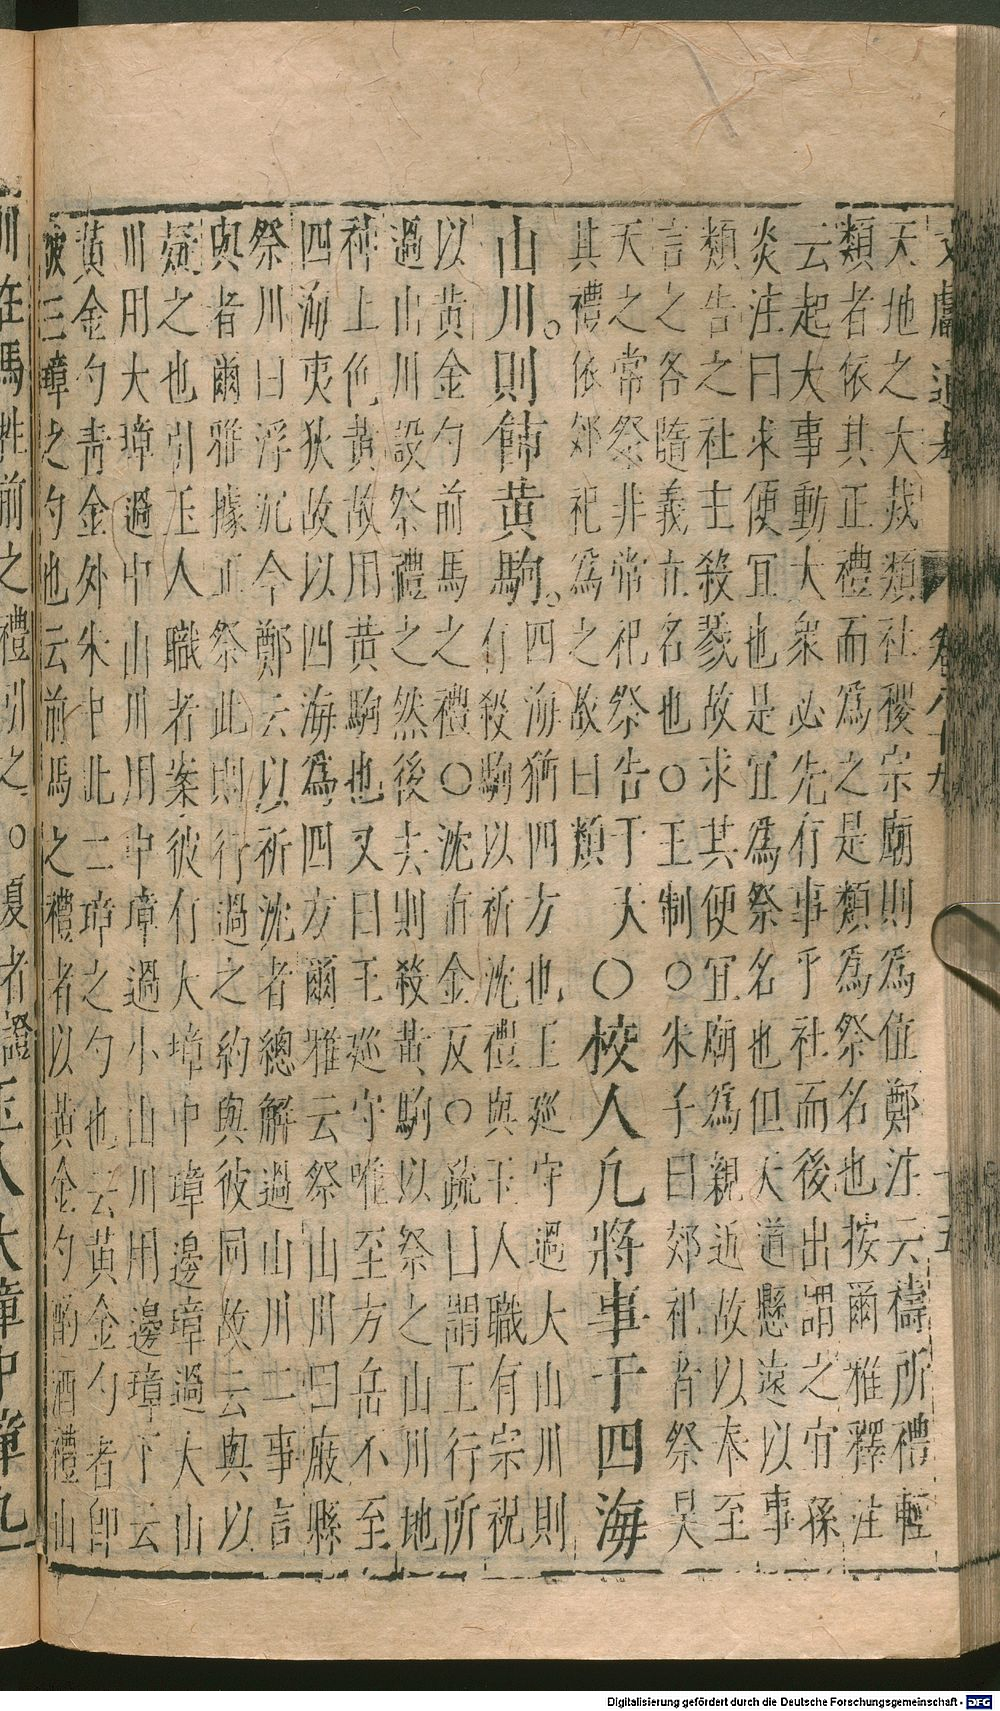 文獻通考 卷八十九 十五
天地之大烖類社稷宗廟則為位鄭注云禱所禮輕
類者依其正禮而為之是類為祭名也按爾雅釋注
云起大事動大衆必先有事乎社而後出謂之宜孫
炎注曰求便宜也是宜為祭名也但天道懸遠以事
類告之社主殺戮故求其便宜廟為親近故以奉至
言之各隨義立名也○王制○朱子曰郊祀者祭昊
天之常祭非常祀祭告于天○
其禮依郊祀為之故曰類
校人凡將事于四海
山川則飾黃駒
四海猶四方也王巡守過大山川則
有殺駒以祈沈禮與玉人職有宗祝
以黃金勺前馬之禮○沈沂金反○疏曰謂王行所
過山川設祭禮之然後去則殺黃駒以祭之山川地
神土色黃故用黃駒也又曰王巡守唯至方岳不至
四海夷狄故以四海為四方爾雅云祭山川曰庪縣
祭川曰浮沉今鄭云以祈沈者總解過山川二事言
與者爾雅據正祭此則行過之約與彼同故云與以
疑之也引玉人職者案彼有大璋中璋邊璋過大山
川用大璋過中山川用中璋過小山川用邊璋下云
黃金勺青金外朱中此二璋之勺也云黃金勺者即
彼三璋之勺也云前馬之禮者以黃金勺酌酒禮山
川在馬牲前之禮引之○夏者證
玉人大璋中璋九
Digitalisierung gefördert durch die Deutsche Forschungsgemeinschaft - DFG